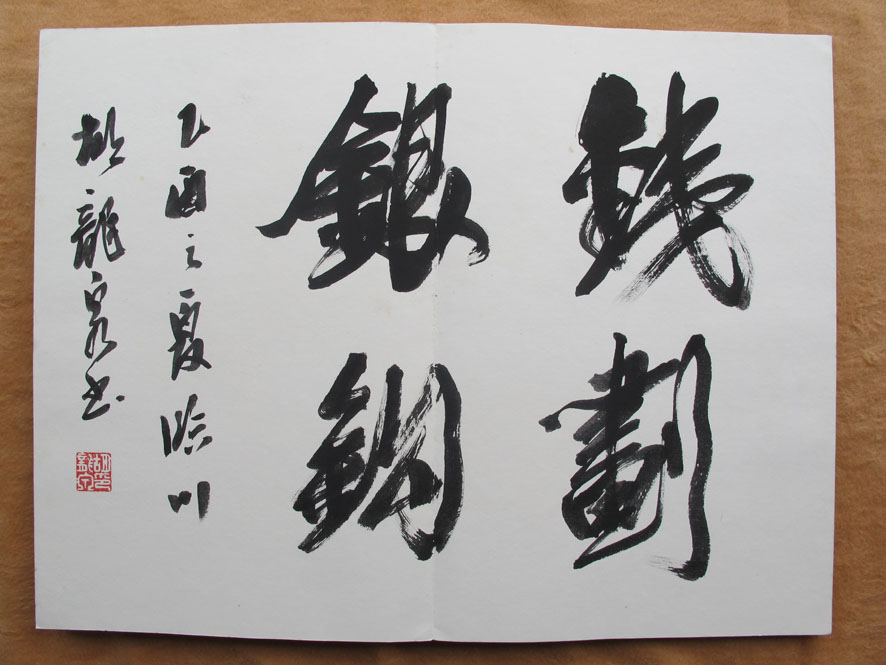 鐵劃
銀鈎
乙酉之夏臨川
胡龍泉書